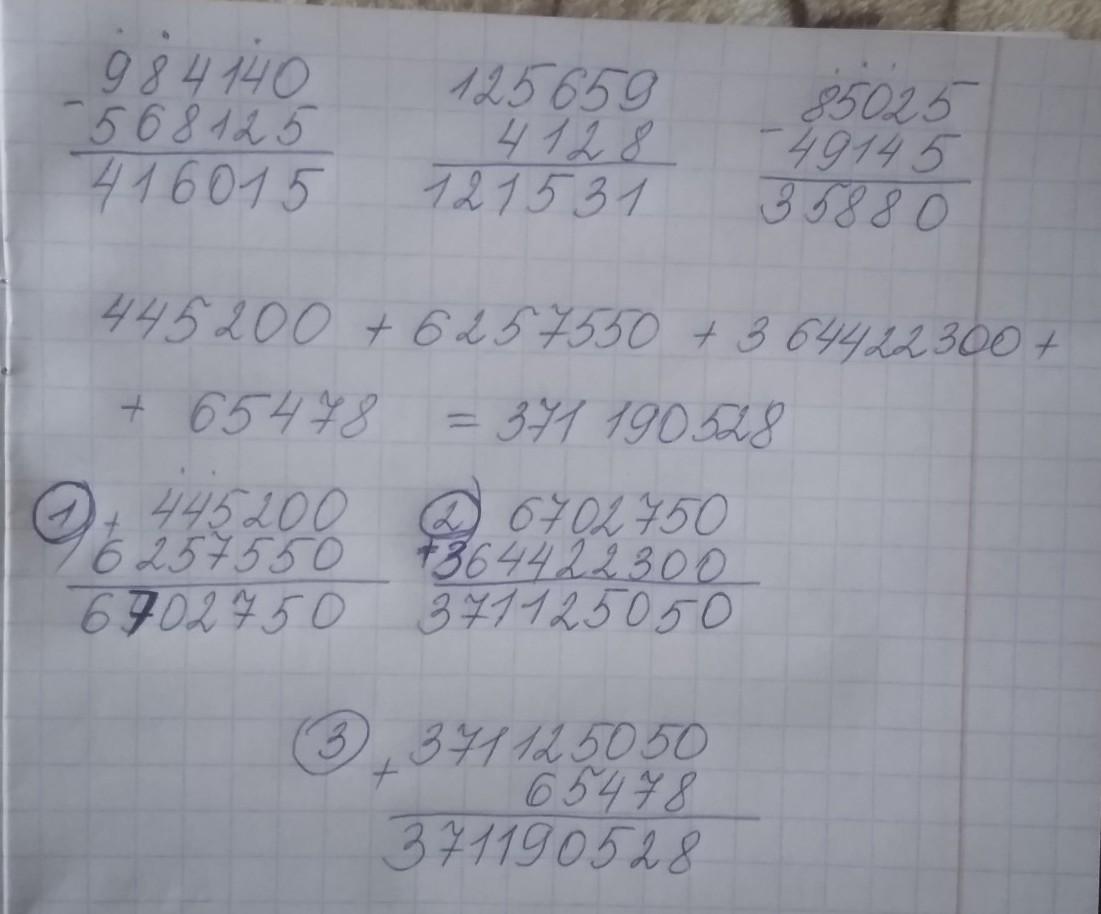 984140 125659 85025
- 568125 4128 - 49145
416015 121531 35880
445200 + 6257550 + 364422300 +
+ 65478 = 371 190528
1) + 445200 2) 6702750
6257550 + 364422300
6702750 371125050
3 + 371125050
65478
371190528